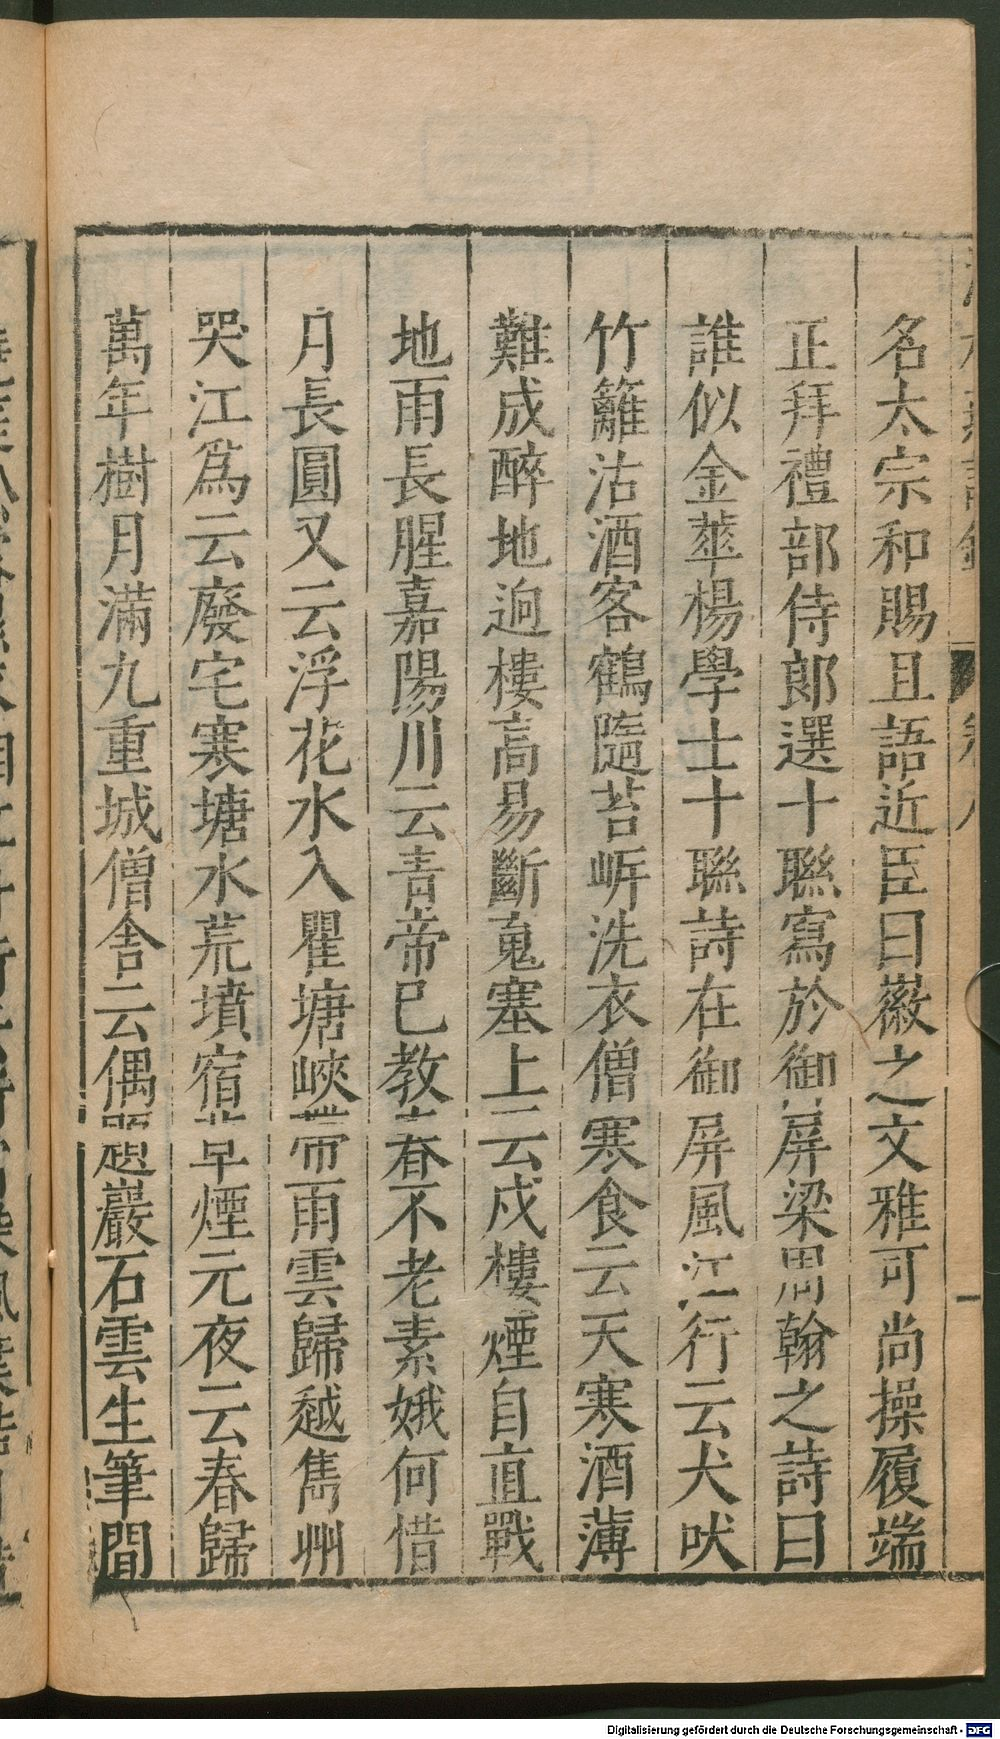 名太宗和賜且語近臣曰徽之文雅可尚操履端
正拜禮部侍郎選十聯寫於御屏梁周翰之詩曰
誰似金華楊學士十聯詩在御屏風江行云犬吠
竹籬沽酒客鶴隨苔岍洗衣僧寒食云天寒酒薄
難成醉地逈樓高易斷䰟塞上云戍樓煙自直戰
地雨長腥嘉陽川云青帝已教春不老素娥何惜
月長圓又云浮花水入瞿塘峽帶雨雲歸越雋州
哭江爲云廢宅寒塘水荒墳宿草煙元夜云春歸
萬年樹月滿九重城僧舍云偶題巖石雲生筆閒
Digitalisierung gefördert durch die Deutsche Forschungsgemeinschaft - DFG